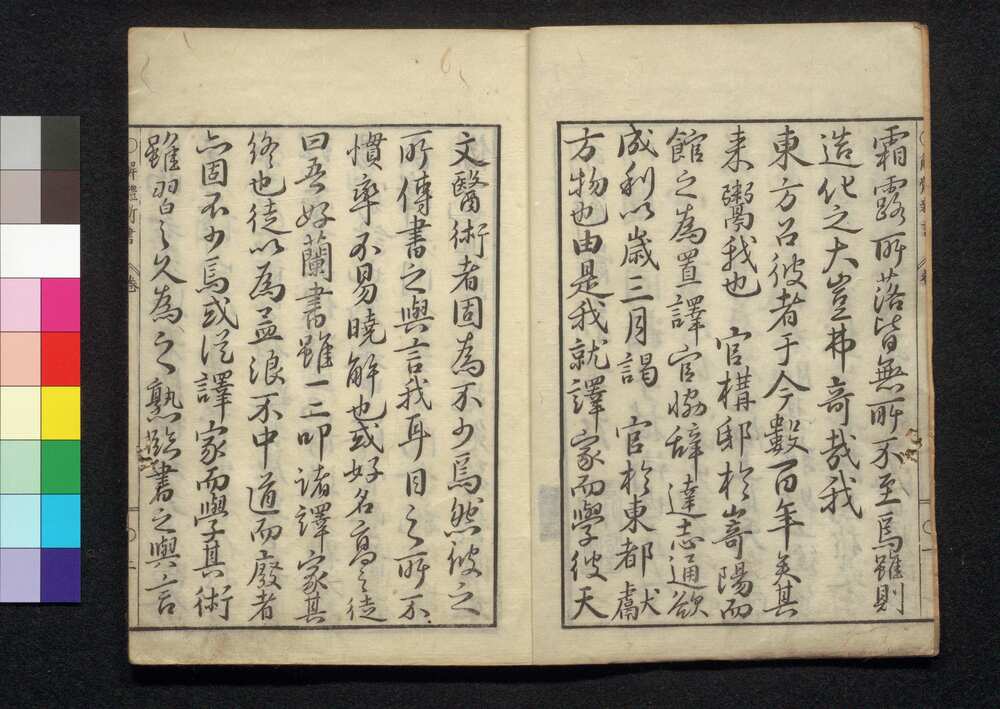 霜露所落皆無所不至焉雖則
造化之大豈弗奇哉我
東方召彼者于今數百年矣其
来鬻我也　官構邸於嵜陽而
館之為置譯官𦚾辞達志通欲
成利以歳三月謁　官於東都犬獻
方物也由是我就譯家而學彼天
文醫術者固為不少焉然彼之
所傳書之與言我耳目之所不
慣率不易曉解也或好名高之徒
曰吾好蘭書雖一二叩諸譯家其
終也徒以為孟浪不中道而廢者
亦固不少焉或従譯家而學其術
雖習之久為之熟赴書之與言
解體新書
卷
一
解體新書
卷
二